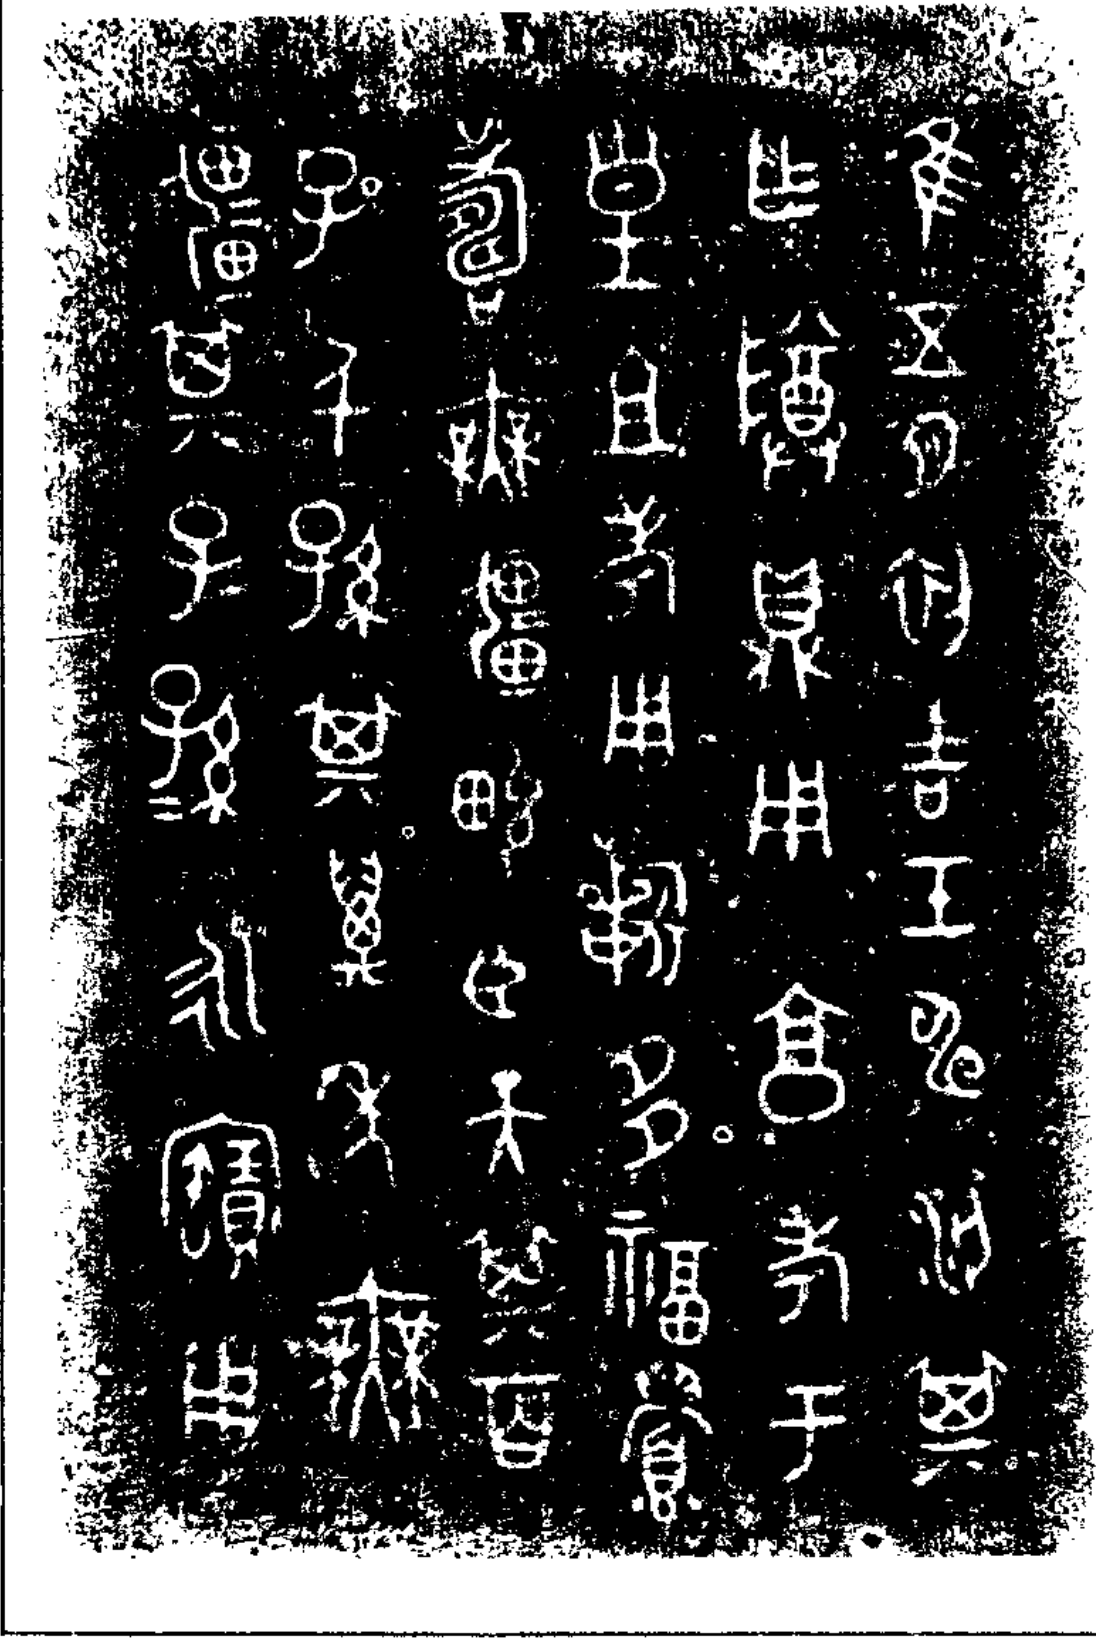 隹五月初吉壬申梁其
乍尊鼎用享孝于
皇且考用旂多福眉
壽無疆畯臣天其百
子千孫其萬年無
疆其子孫₌永寶用